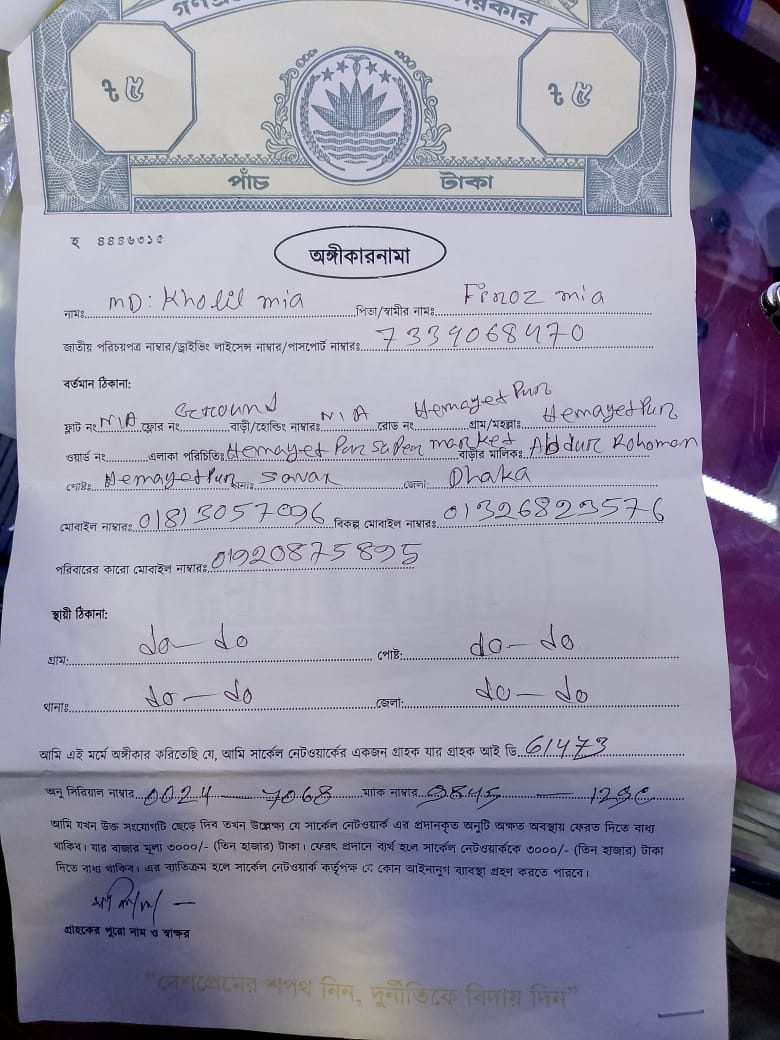 ৳ ৫ ৳ ৫
পাঁচ টাকা
হ ৪৪৪৬৩১৫
অঙ্গীকারনামা
নামঃ MD: Kholil mia পিতা/স্বামীর নামঃ Firoz mia
জাতীয় পরিচয়পত্র নাম্বার/ড্রাইভিং লাইসেন্স নাম্বার/পাসপোর্ট নাম্বারঃ 7339068470
বর্তমান ঠিকানা:
ফ্লাট নং N/A ফ্লোর নং Ground বাড়ী/হোল্ডিং নাম্বারঃ N/A রোড নং Hemayet Pur গ্রাম/মহল্লাঃ Hemayet Pur
ওয়ার্ড নং এলাকা পরিচিতিঃ Hemayet Pur Super market বাড়ীর মালিকঃ Abdur Rohoman
পোষ্টঃ Hemayet Pur থানাঃ Savar জেলা: Dhaka
মোবাইল নাম্বারঃ 01813057096 বিকল্প মোবাইল নাম্বারঃ 01326823576
পরিবারের কারো মোবাইল নাম্বারঃ 01920875895
স্থায়ী ঠিকানা:
গ্রাম: do - do পোষ্ট: do - do
থানাঃ do - do জেলা: do - do
আমি এই মর্মে অঙ্গীকার করিতেছি যে, আমি সার্কেল নেটওয়ার্কের একজন গ্রাহক যার গ্রাহক আই ডি 61473
অনু সিরিয়াল নাম্বার 0024 - 7068 ম্যাক নাম্বার 9845 -
আমি যখন উক্ত সংযোগটি ছেড়ে দিব তখন উল্লেক্ষ্য যে সার্কেল নেটওয়ার্ক এর প্রদানকৃত অনুটি অক্ষত অবস্থায় ফেরত দিতে বাধ্য
থাকিব। যার বাজার মূল্য ৩০০০/- (তিন হাজার) টাকা। ফেরৎ প্রদানে ব্যর্থ হলে সার্কেল নেটওয়ার্ককে ৩০০০/- (তিন হাজার) টাকা
দিতে বাধ্য থাকিব। এর ব্যতিক্রম হলে সার্কেল নেটওয়ার্ক কর্তৃপক্ষ যে কোন আইনানুগ ব্যবস্থা গ্রহণ করতে পারবে।
গ্রাহকের পুরো নাম ও স্বাক্ষর
"দেশপ্রেমের শপথ নিন, দুর্নীতিকে বিদায় দিন"